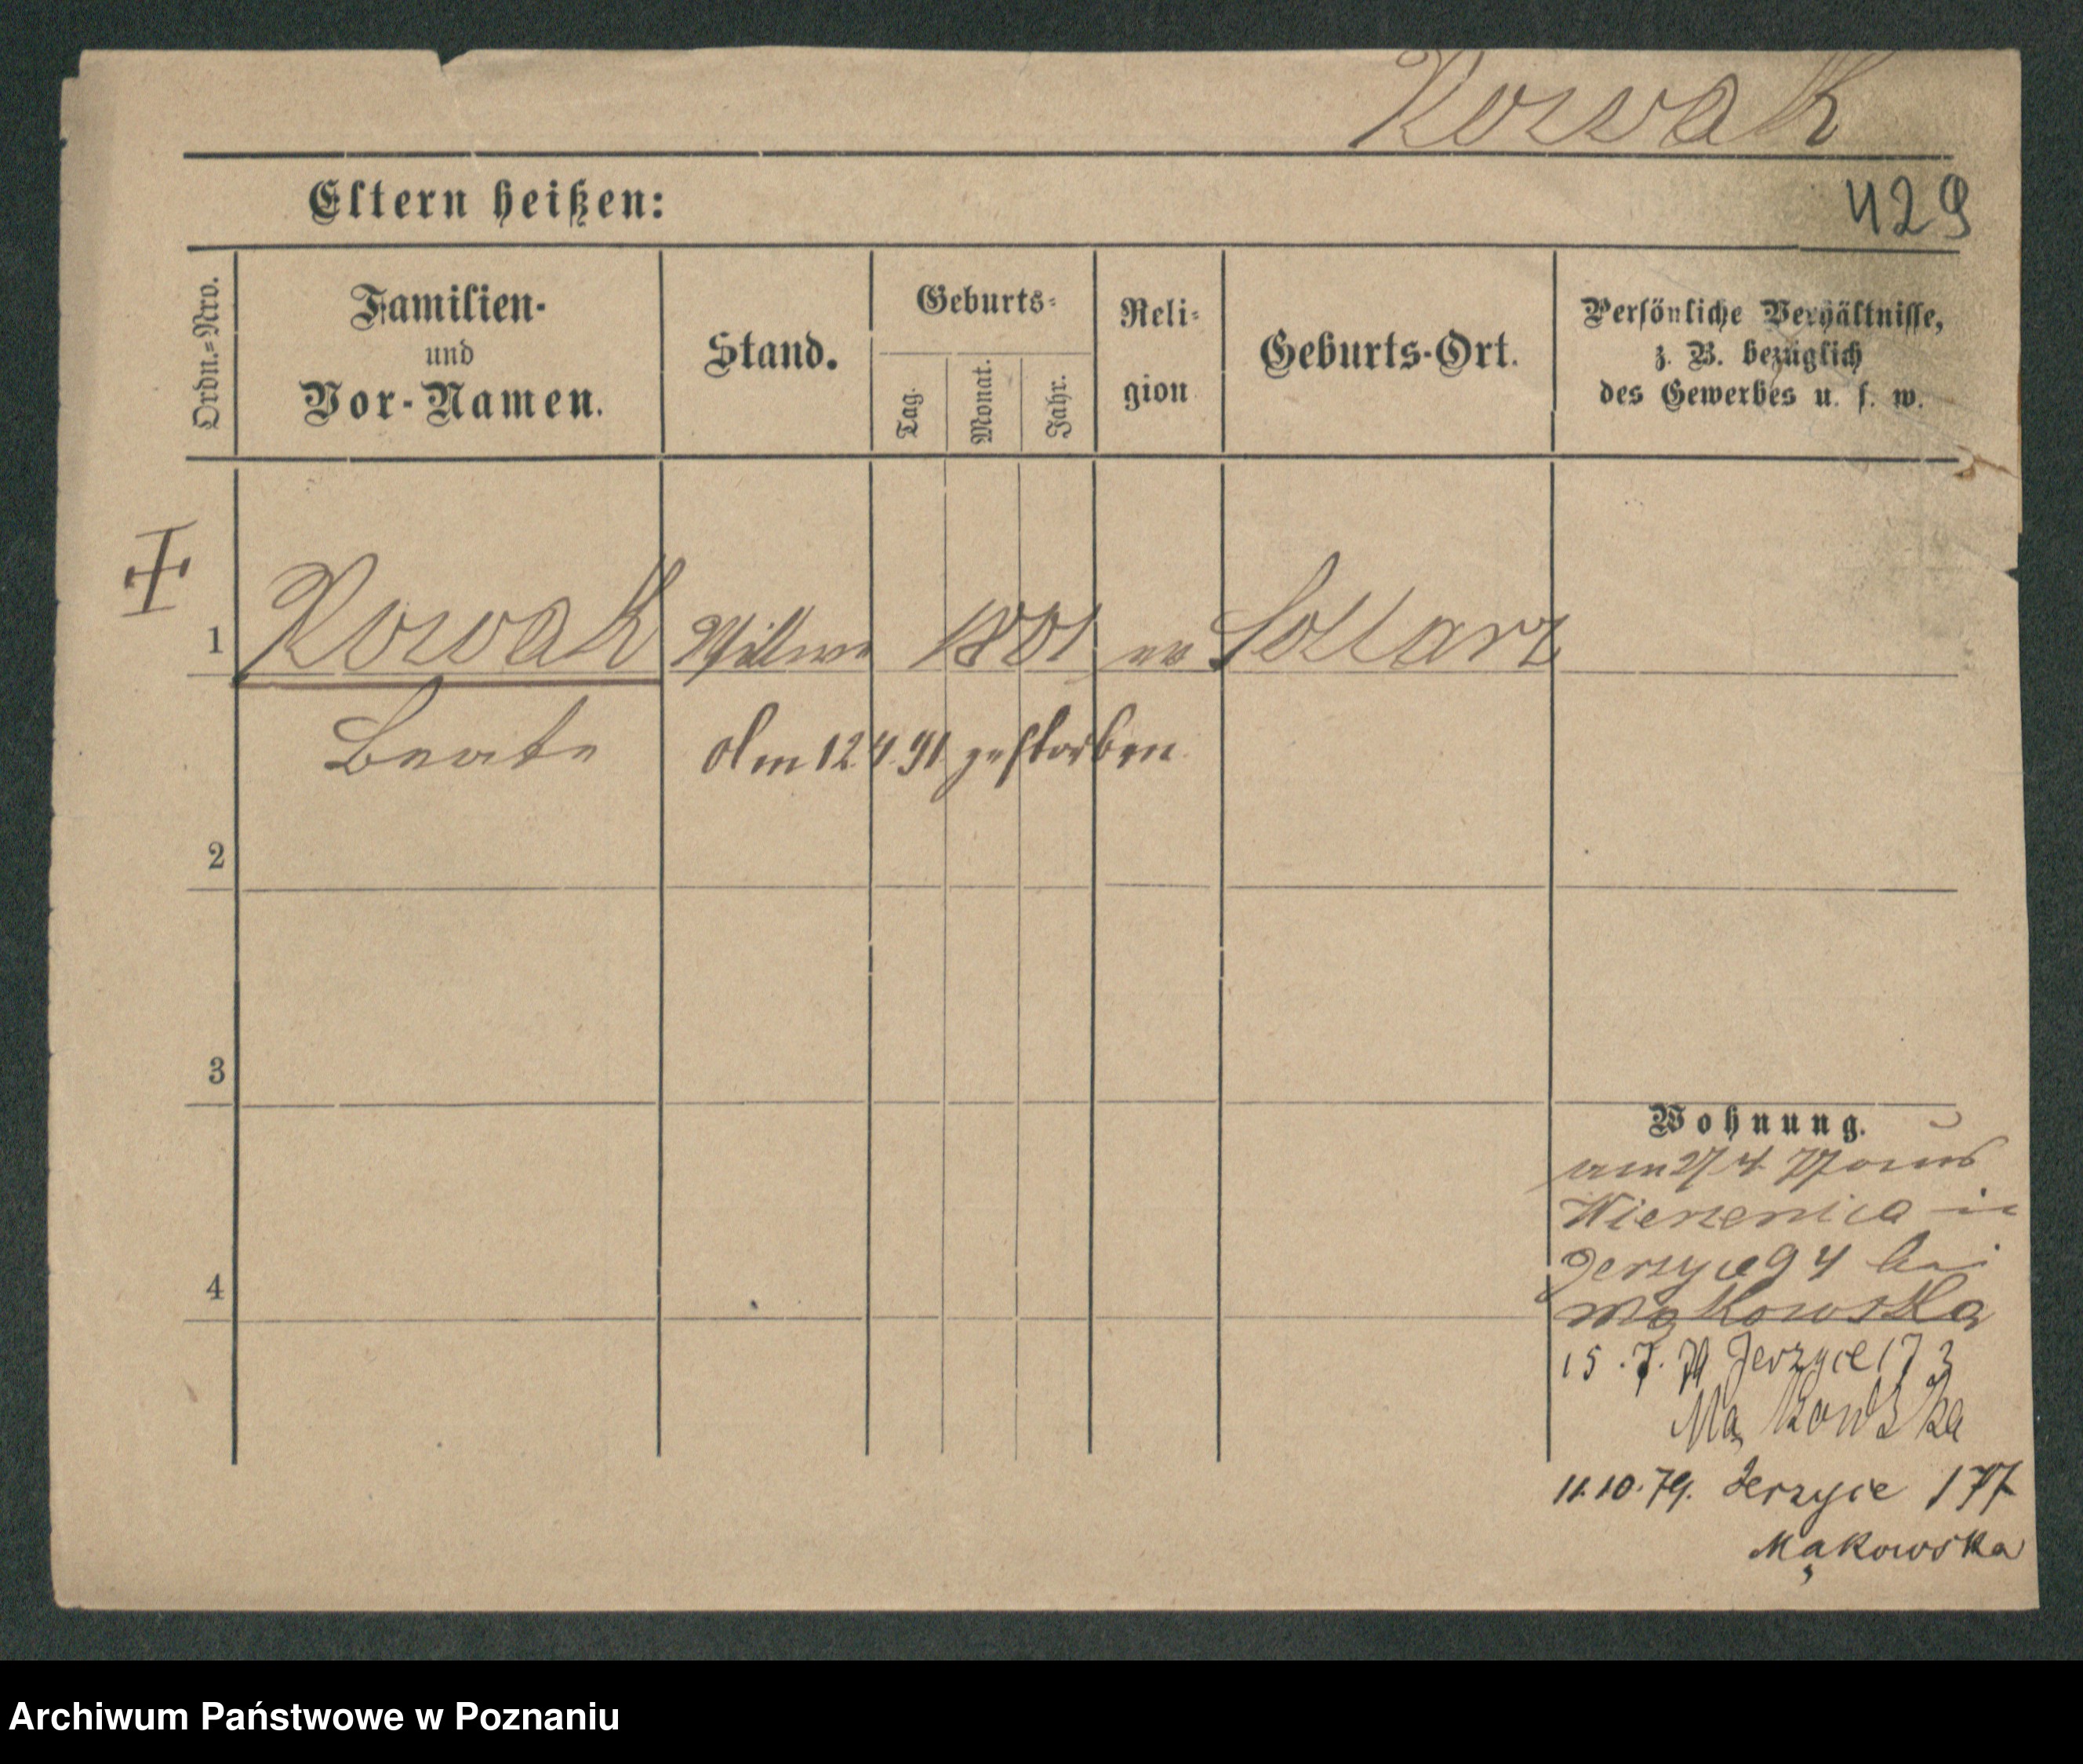 Nowak
Eltern heißen:
429
Ordn.=Nro.
Familien-
und
Vor-Namen.
Stand.
Geburts-
Tag.
Monat.
Jahr.
Reli-
gion
Geburts-Ort.
Persönliche Verhältnisse,
z. B. bezüglich
des Gewerbes u. s. w.
1
Nowak Wittwe 1801 ev Sollarz
Beate Am 12.4.91 gestorben
2
3
4
Wohnung.
am 27/4 77 aus
in
Jerzyce 94 bei
Mąkowska
15.7.79 Jerzyce 173
Mąkowska
11.10.79. Jerzyce 177
Mąkowska
Archiwum Państwowe w Poznaniu